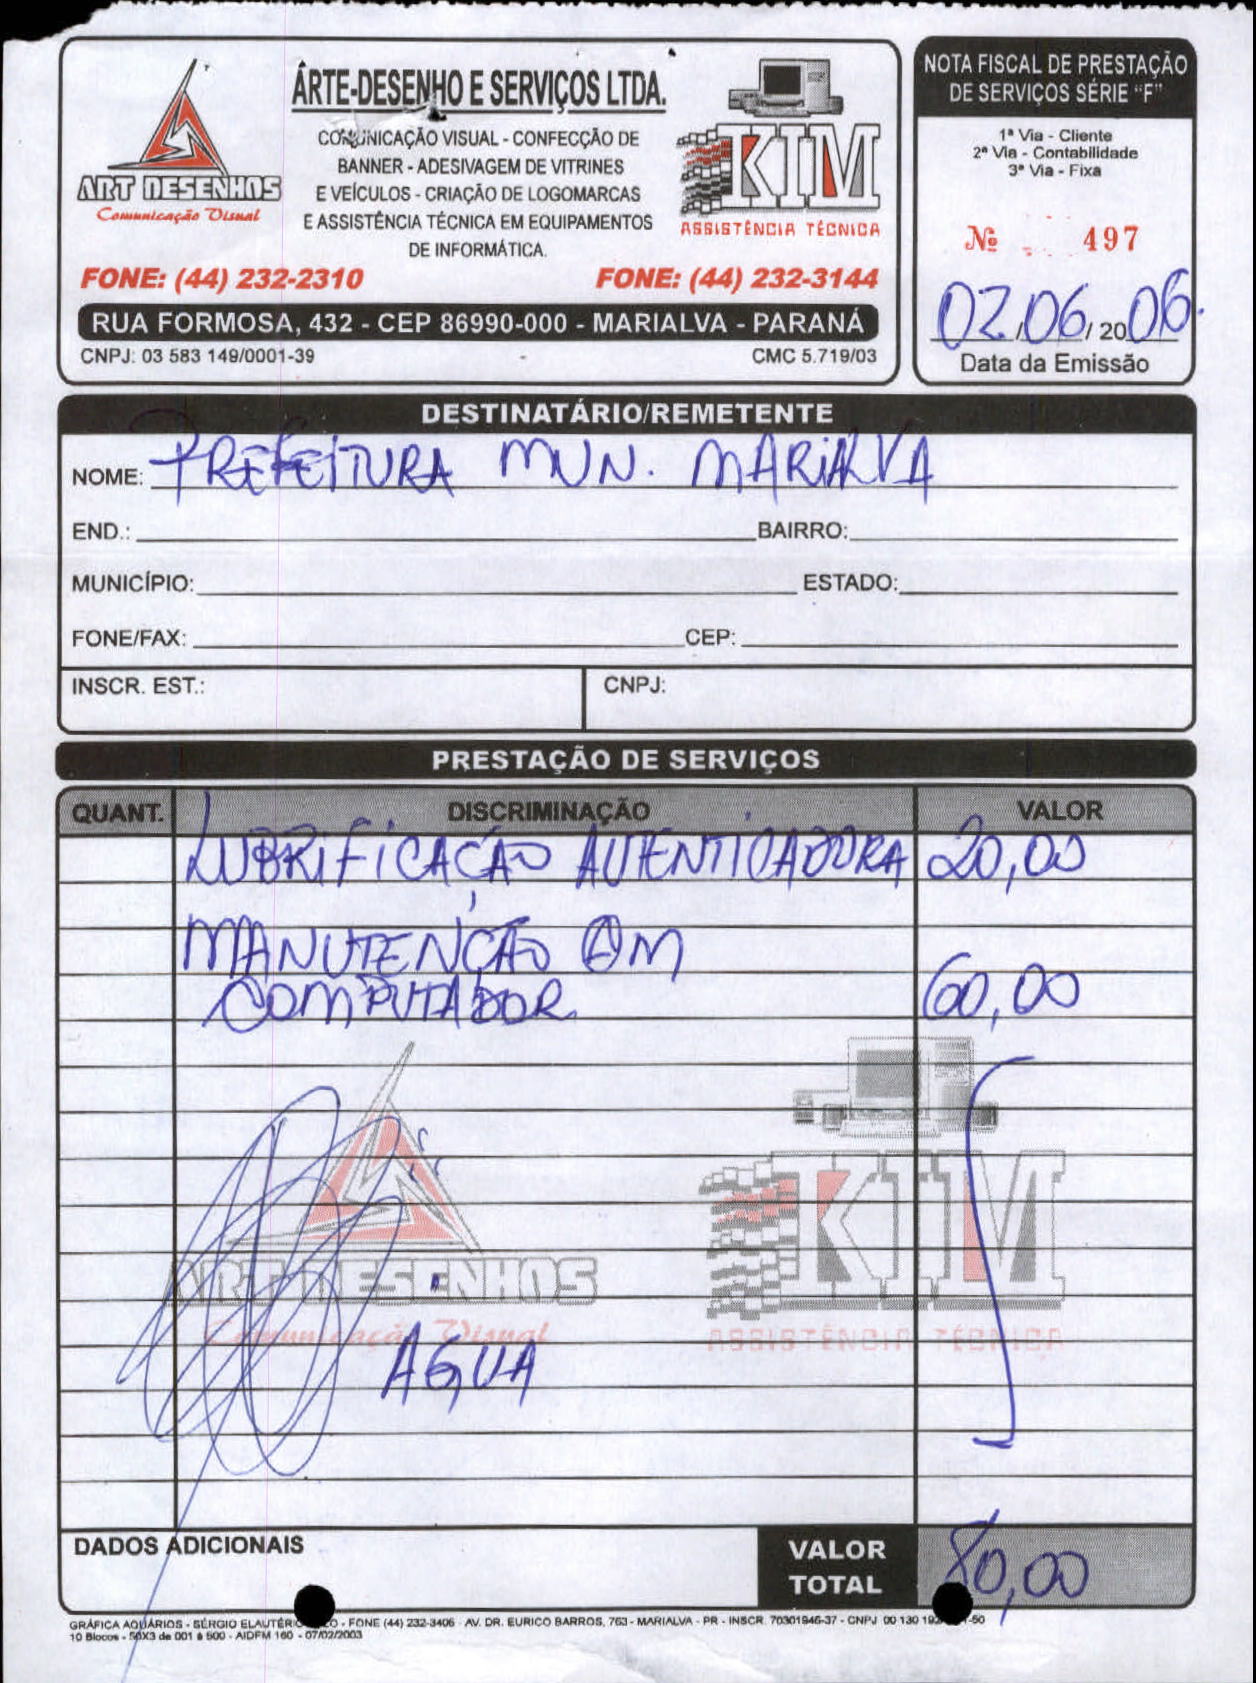 ARTE-DESENHO E SERVIÇOS LTDA.
COMUNICAÇÃO VISUAL - CONFECÇÃO DE
BANNER - ADESIVAGEM DE VITRINES
E VEÍCULOS - CRIAÇÃO DE LOGOMARCAS
E ASSISTÊNCIA TÉCNICA EM EQUIPAMENTOS
DE INFORMÁTICA.
ART DESENHOS
Comunicação Visual
KIM
ASSISTÊNCIA TÉCNICA
FONE: (44) 232-2310 FONE: (44) 232-3144
RUA FORMOSA, 432 - CEP 86990-000 - MARIALVA - PARANÁ
CNPJ: 03 583 149/0001-39 CMC 5.719/03
NOTA FISCAL DE PRESTAÇÃO
DE SERVIÇOS SÉRIE "F"
1ª Via - Cliente
2ª Via - Contabilidade
3ª Via - Fixa
Nº 497
02/06/2006.
Data da Emissão
DESTINATÁRIO/REMETENTE
NOME: PREFEITURA MUN. MARIALVA
END.: BAIRRO:
MUNICÍPIO: ESTADO:
FONE/FAX: CEP:
INSCR. EST.: CNPJ:
PRESTAÇÃO DE SERVIÇOS
QUANT. DISCRIMINAÇÃO VALOR
LUBRIFICAÇÃO AUTENTICADORA 20,00
MANUTENÇÃO EM
COMPUTADOR 60,00
ART DESENHOS
Comunicação Visual
KIM
ASSISTÊNCIA TÉCNICA
AGUA
DADOS ADICIONAIS
VALOR
TOTAL 80,00
GRÁFICA AQUÁRIOS - SÉRGIO - FONE (44) 232-3406 - AV. DR. EURICO BARROS, 763 - MARIALVA - PR - INSCR. 70301946-37 - CNPJ 00 130
10 Blocos - 50X3 de 001 a 500 - AIDFM 160 - 07/02/2003